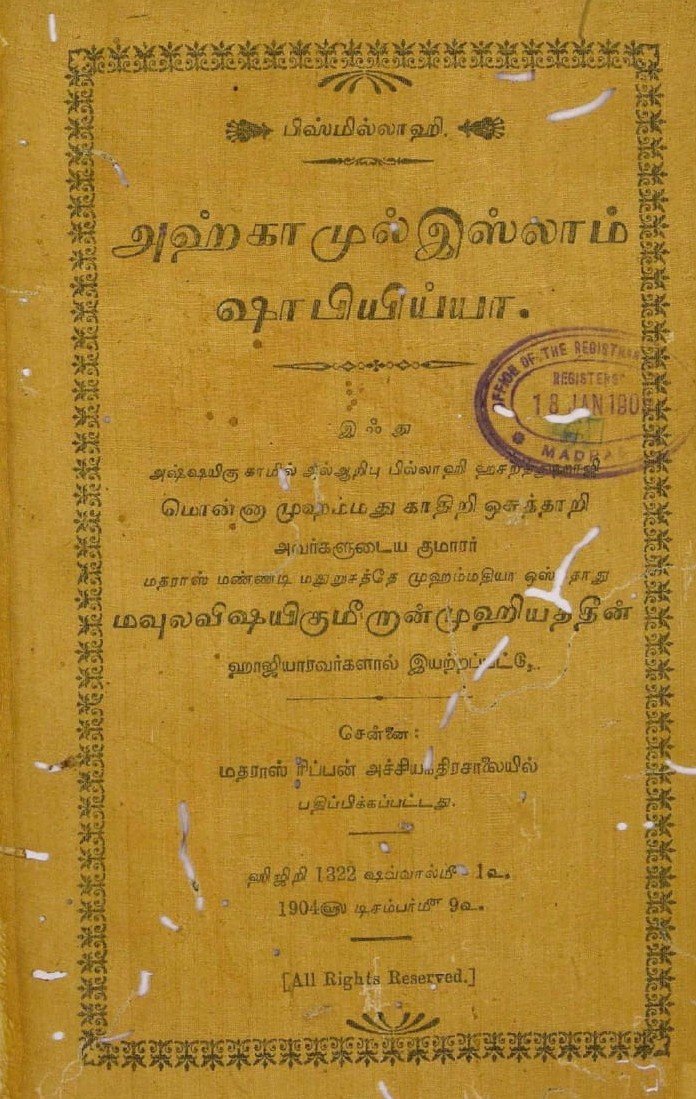 பிஸ்மில்லாஹி.
அஹ்காமுல் இஸ்லாம்
ஷாபியிய்யா.
OFFICE OF THE REGISTRAR
REGISTERED
18 JAN 190
MADRAS
இஃது
அஷ்ஷயிகு காமில் அல்ஆறிபு பில்லாஹி
மொன்னா முஹம்மது காதிறி ஒசுத்தாறி
அவர்களுடைய குமாரர்
மதராஸ் மண்ணடி மதுறுசத்தே முஹம்மதியா
மவுலவிஷயிகுமீறான்முஹியத்தீன்
ஹாஜியாரவர்களால் இயற்றப்பட்டு,
சென்னை:
மதராஸ் ரிப்பன் அச்சியந்திரசாலையில்
பதிப்பிக்கப்பட்டது.
ஹிஜிறி 1322 ஷவ்வால்மீ 1உ.
1904௵ டிசம்பர்மீ 9உ.
[All Rights Reserved.]